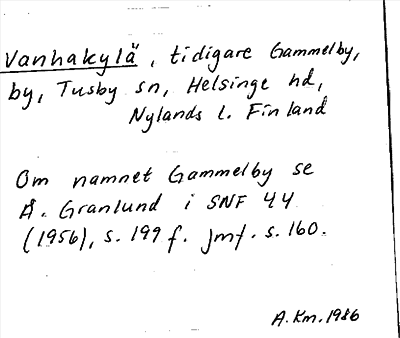 Vanhakylä, tidigare Gammelby,
by, Tusby sn, Helsinge hd,
Nylands l. Finland
Om namnet Gammelby se
Å. Granlund i SNF 44
(1956), s. 199 f. Jmf. s. 160.
A. Km. 1986